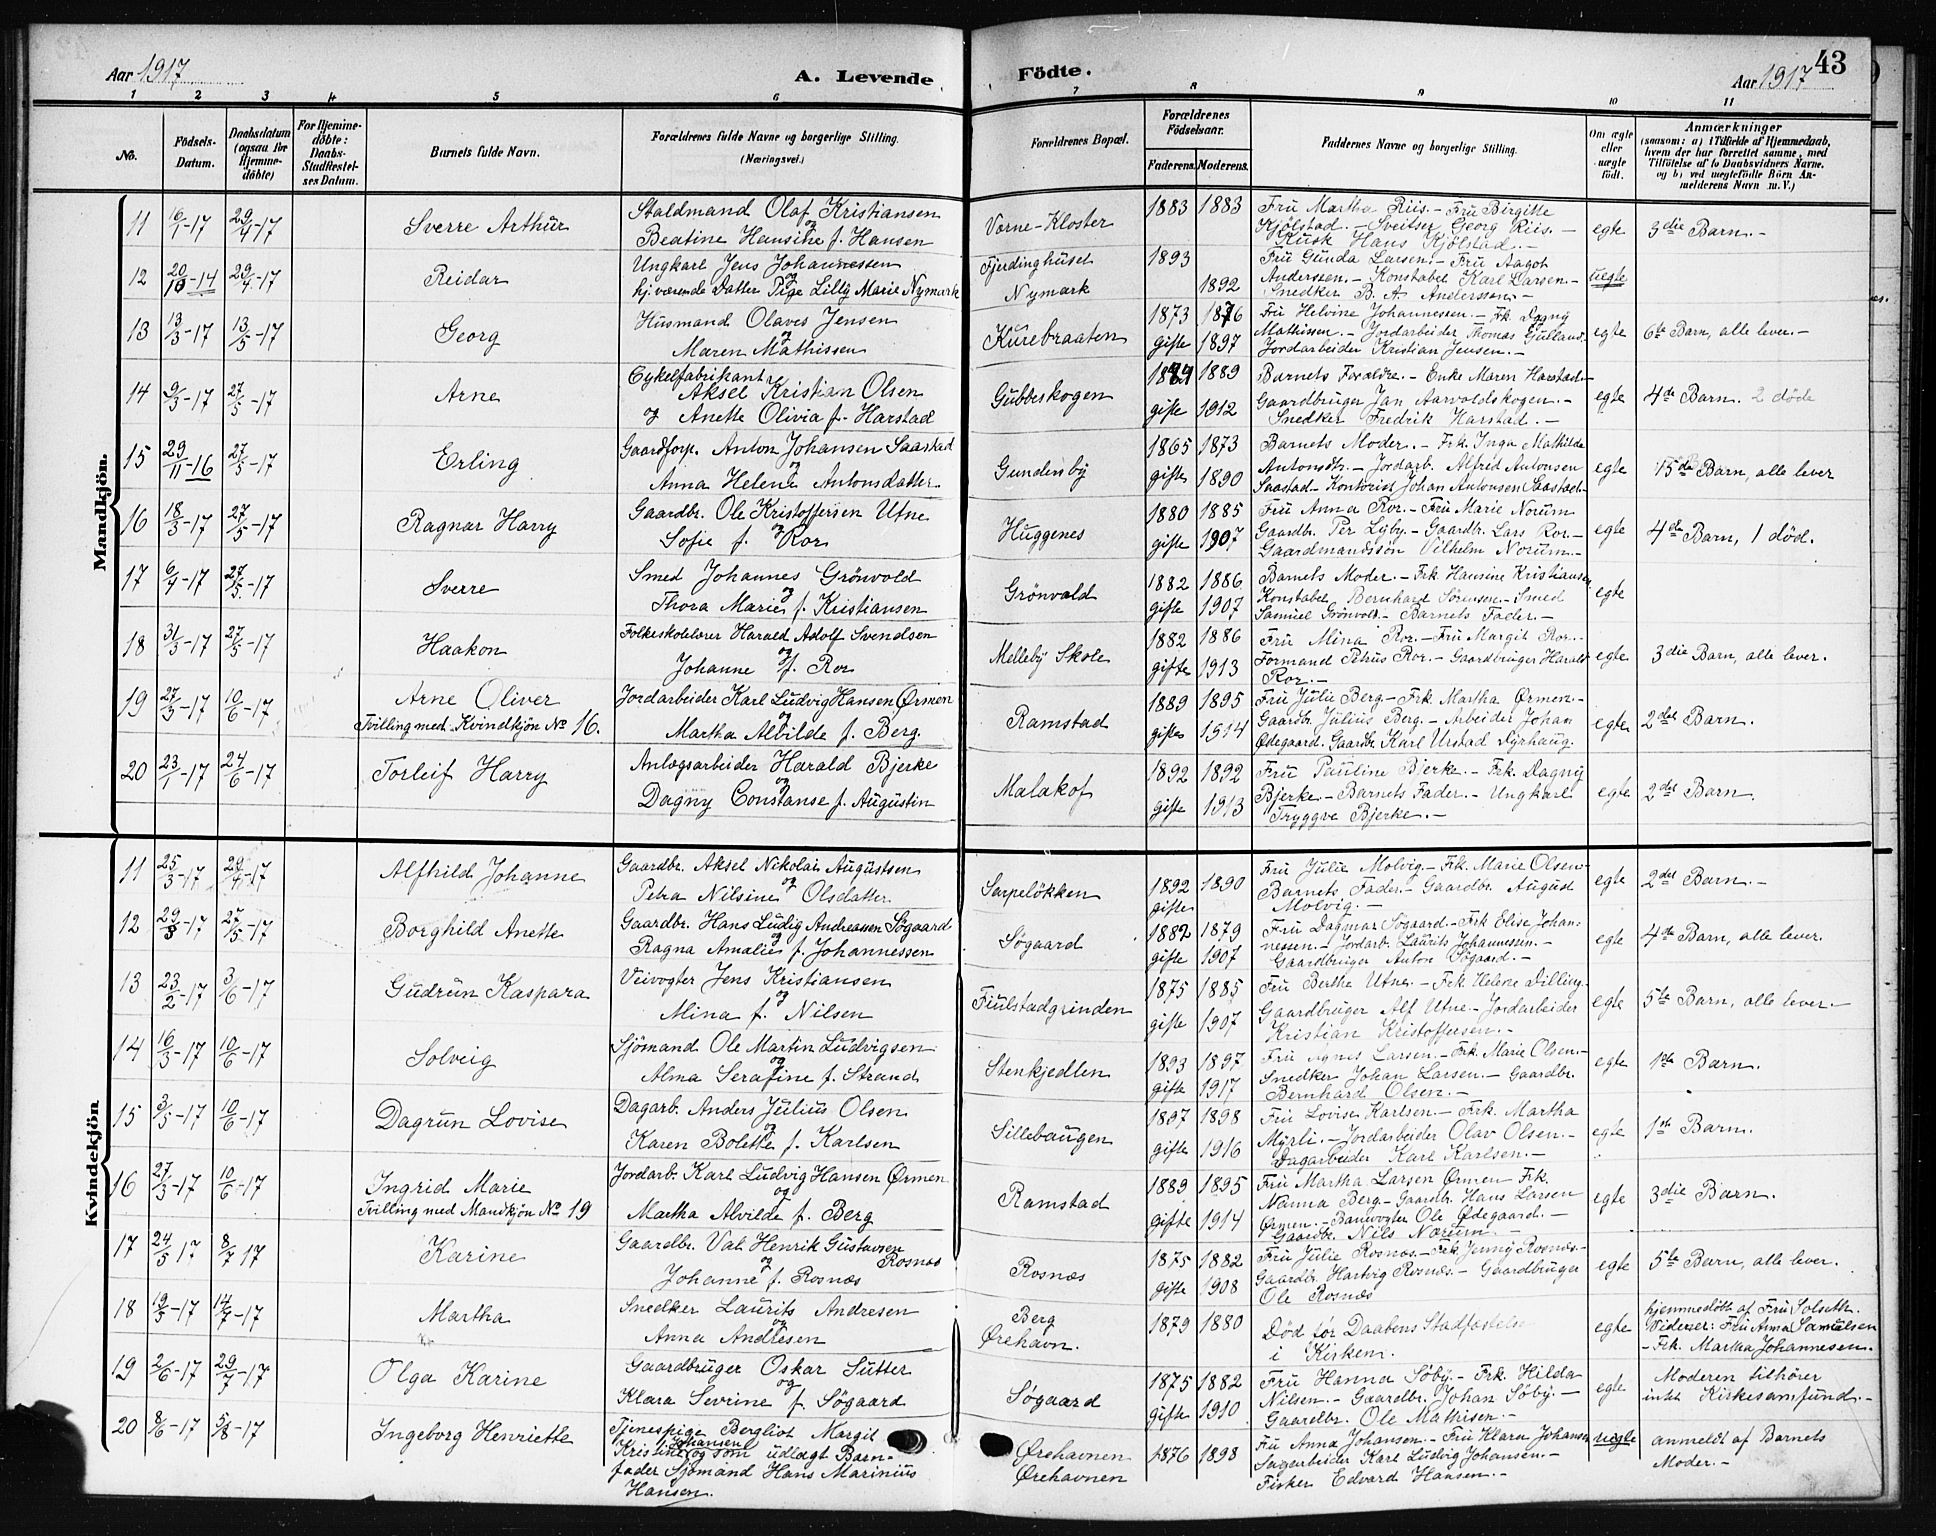 Aar 1917
A. Levende Födte.
Aar 1917 43
1 2 3 4 5 6 7 8 9 10 11
No.
Födsels-Datum.
Daabsdatum (ogsaa for Hjemmedöbte)
For Hjemmedöbte: Daabs-Stadfæstelses Datum.
Barnets fulde Navn.
Forældrenes fulde Navne og borgerlige Stilling. (Næringsvei.)
Forældrenes Bopæl.
Forældrenes Födselsaar.
Faderens. Moderens.
Faddernes Navne og borgerlige Stilling.
Om ægte eller uægte födt.
Anmærkninger (saasom: a) i Tilfælde af Hjemmedaab, hvem der har forrettet samme, med Tilföielse af to Daabsvidners Navne. og b) ved uegtefödte Börn Anmelderens Navn m. V.)
Mandkjön.
11 16/1-17 29/4-17 Sverre Arthur Staldmand Olaf Kristiansen og Beatine Hansine f. Hansen Varne-Kloster 1883 1883 Fru Martha Riis. - Fru Birgitte Kjölstad. - Sveitser Georg Riis. - Kusk Hans Kjölstad. - egte 3die Barn. -
12 20/10-14 29/4-17 Reidar Ungkarl Jens Johannessen og hj.værende Datter Pige Lilly Marie Nymark Fjerdinghuset Nymark 1893 1892 Fru Gunda Larsen. - Fru Aagot Anderssen. - Konstabel Karl Larsen. - Snedker B. A. Anderssen. - uegte
13 13/3-17 13/5-17 Georg Husmand Olaves Jensen og Maren Mathissen Kurebraaten 1873 1876 gifte 1897 Fru Helvine Johannessen. - Frk. Dagny Mathissen. - Jordarbeider Thomas Gulland. Jordarbeider Kristian Jensen. - egte 6te Barn, alle lever. -
14 9/3-17 27/5-17 Arne Cykelfabrikant Aksel Kristian Olsen og Anette Olivia f. Harstad Gubbeskogen 1889 gifte 1912 Barnets Forældre. - Enke Maren Harstad. - Gaardbruger Jan Aarvoldskogen. - Snedker Fredrik Harstad. - egte 4de Barn. 2 döde
15 29/11-16 27/5-17 Erling Gaardforp. Anton Johansen Saastad og Anna Helene Antonsdatter Gundersby 1865 1873 gifte 1890 Barnets Moder. - Frk. Inga Mathilde Antonsdtr. - Jordarb. Alfred Antonsen Saastad - Kontorist Johan Antonsen Saastad. - egte 15de Barn, alle lever
16 18/3-17 27/5-17 Ragnar Harry Gaardbr. Ole Kristoffersen Utne og Sofie f. Ror Huggenes 1880 1885 gifte 1907 Fru Anna Ror. - Fru Marie Norum Gaardbr. Per Lyby. - Gaardbr. Lars Ror. - Gaardmandssön Vilhelm Norum. - egte 4de Barn, 1 död.
17 6/4-17 27/5-17 Sverre Smed Johannes Grönvold og Thora Marie f. Kristiansen Grönvold 1882 1886 gifte 1907 Barnets Moder. - Frk. Hansine Kristiansen Konstabel Bernhard Sörensen. - Smed Samuel Grönvold. - Barnets Fader. - egte
18 31/3-17 27/5-17 Haakon Folkeskolelærer Harald Adolf Svendsen og Johanne f. Ror Melleby Skole 1882 1886 gifte 1913 Fru Mina Ror. - Fru Margit Ror. - Formand Petrus Ror. - Gaardbruger Harald Ror. - egte 3die Barn, alle lever.
19 27/3-17 10/6-17 Arne Oliver Tvilling med Kvindkjön No 16. Jordarbeider Karl Ludvig Hansen Ørmen og Martha Alvilde f. Berg. Ramstad 1889 1895 gifte 1914 Fru Julie Berg. - Frk. Martha Ørmen. - Gaardbr. Julius Berg. - Arbeider Johan Ødegaard. Gaardbr. Karl Urstad Dyrhaug. egte 2det Barn.
20 23/1-17 24/6-17 Torleif Harry Anlægsarbeider Harald Bjerke og Dagny Constanse f. Augustin Malakof 1892 1892 gifte 1913 Fru Pauline Bjerke. - Frk. Dagny Bjerke. - Barnets Fader. - Ungkarl Tryggve Bjerke. - egte 2det Barn.
Kvindekjön
11 25/3-17 29/4-17 Alfhild Johanne Gaardbr. Aksel Nikolai Augustsen og Petra Nilsine Olsdatter Sarpelökken 1892 1890 gifte Fru Julie Molvig - Frk. Marie Olsen - Barnets Fader. - Gaardbr. August Molvig. - egte 2det Barn. -
12 29/3-17 27/5-17 Borghild Anette Gaardbr. Hans Ludvig Andreassen Søgaard og Ragna Amalie f. Johannessen Søgaard 1882 1879 gifte 1907 Fru Dagmar Søgaard - Frk. Elise Johannessen. - Jordarb. Laurits Johannessen. - Gaardbruger Anton Søgaard. - egte 4de Barn, alle lever.
13 23/2-17 3/6-17 Gudrun Kaspara Veivogter Jens Kristiansen og Mina f. Nilsen Fiulstadgrinden 1875 1885 gifte 1907 Fru Berthe Utne. - Frk Helene Dilling. Gaardbruger Alf Utne - Jordarbeider Kristian Kristoffersen. - egte 5te Barn, alle lever. -
14 16/3-17 10/6-17 Solveig Sjömand Ole Martin Ludvigsen og Alma Serafine f. Strand Stenkjedlen 1893 1897 gifte 1917 Fru Agnes Larsen. - Frk. Marie Olsen. - Snedker Johan Larsen. - Gaardbr. Bernhard Olsen. - egte 1ste Barn.
15 3/5-17 10/6-17 Dagrun Lovise Dagarb. Anders Julius Olsen og Karen Bolette f. Karlsen Sillebaugen 1897 1898 gifte 1916 Fru Lovise Karlsen - Frk. Martha Myrli. - Jordarbeider Olav Olsen. - Dagarbeider Karl Karlsen. - egte 1ste Barn.
16 27/3-17 10/6-17 Ingrid Marie Tvilling med Mandkjön No 19 Jordarb. Karl Ludvig Hansen Ørmen og Martha Alvilde f. Berg Ramstad 1889 1895 gifte 1914 Fru Martha Larsen Ørmen Frk. Nanna Berg - Gaardbr. Hans Larsen Ørmen. - Banevogter Ole Ødegaard. - Gaardbr. Nils Nærum. - egte 3die Barn.
17 24/5 17 8/7 17 Karine Gaardbr. Val. Henrik Gustavsen Rosnæs og Johanne f. Rosnæs Rosnæs 1875 1882 gifte 1908 Fru Julie Rosnæs. - Frk Jenny Rosnæs. - Gaardbr. Hartvig Rosnæs. - Gaardbruger Ole Rosnæs egte 5te Barn, alle lever.
18 19/5-17 14/7-17 Martha Snedker Laurits Andresen og Anna Andresen Berg Ørehavn. 1879 1880 Död för Daabens Stadfæstelse i Kirken. egte hjemmedöbt af Fru Solseth. Vidner: Fru Anna Samuelsen - Frk. Martha Johannesen. -
19 2/6-17 29/7-17 Olga Karine Gaardbruger Oskar Sutter og Klara Sevrine f. Søgaard Søgaard 1875 1882 gifte 1910 Fru Hanna Söby. - Frk. Hilda Nilsen. - Gaardbr. Johan Söby. - Gaardbr. Ole Mathisen. - egte Moderen tilhörer intet Kirkesamfund. -
20 8/6-17 5/8-17 Ingeborg Henriette Tjenespige Bergliot Margit Kristine Johansen og som udlagt Barnefader Sjömand Hans Marinius Hansen. Ørehavnen Ørehavnen 1876 1898 Fru Anna Johansen. - Fru Klara Johansen Sagarbeider Karl Ludvig Johansen. - Fisker Edvard Hansen. - uegte anmeldt af Barnets Moder. -